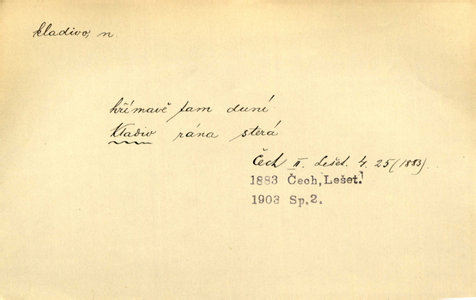 kladivo, n
hřímavě tam duní
Kladiv rána sterá
Čech II. Lešet. 4. 25 (1883).
1883 Čech, Lešet.
1903 Sp.2.